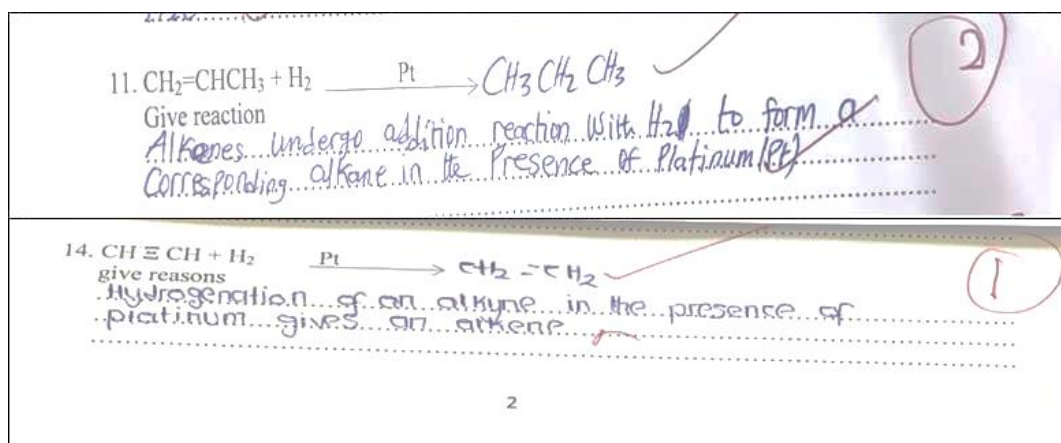 11. CH₂=CHCH₃ + H₂ Pt → CH3 CH2 CH3
2
Give reaction
Alkenes undergo addition reaction with H2 to form a
Corresponding alkane in the Presence of Platinum (Pt)
14. CH ≡ CH + H₂ Pt → CH2 = CH2
1
give reasons
Hydrogenation of an alkyne in the presence of
platinum gives an alkene
2